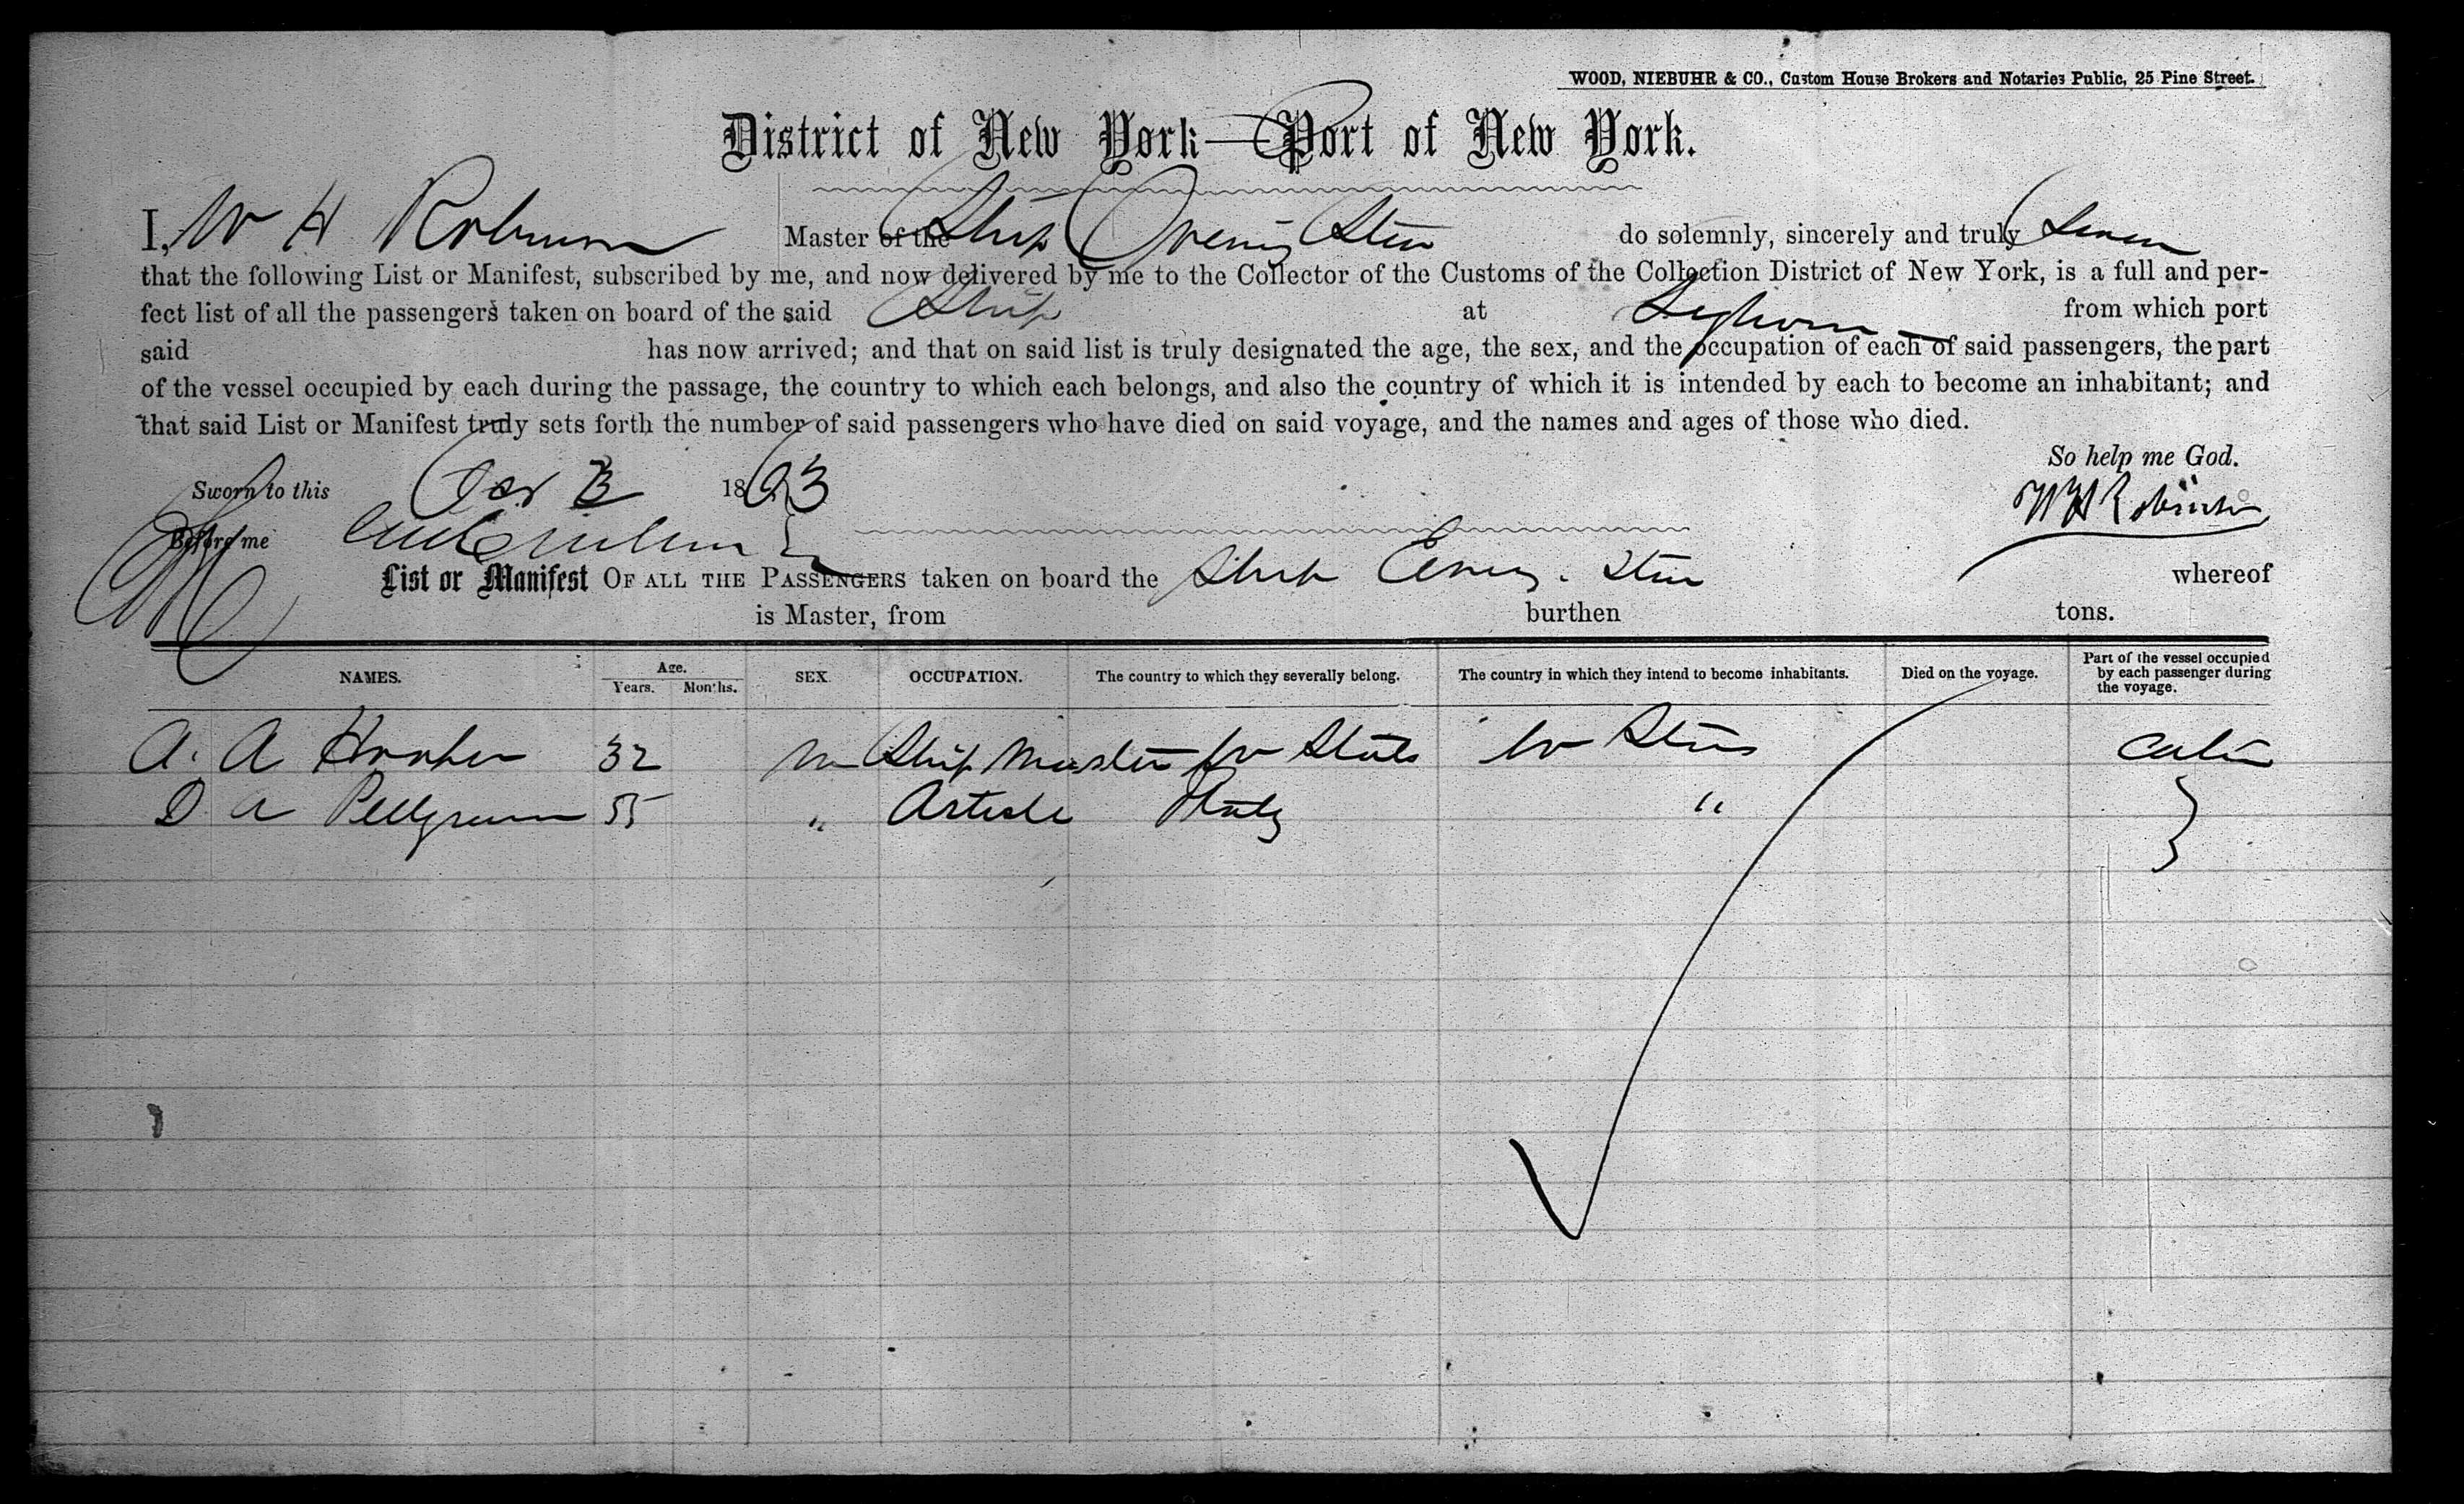 WOOD, NIEBUHR & CO., Custom House Brokers and Notaries Public, 25 Pine Street.
District of New York—Port of New York.
I, W H Robinson Master of the Ship Evening Star do solemnly, sincerely and truly Swear
that the following List or Manifest, subscribed by me, and now delivered by me to the Collector of the Customs of the Collection District of New York, is a full and per-
fect list of all the passengers taken on board of the said Ship at Leghorn from which port
said has now arrived; and that on said list is truly designated the age, the sex, and the occupation of each of said passengers, the part
of the vessel occupied by each during the passage, the country to which each belongs, and also the country of which it is intended by each to become an inhabitant; and
that said List or Manifest truly sets forth the number of said passengers who have died on said voyage, and the names and ages of those who died.
So help me God.
Sworn to this Oct 3 1863
W H Robinson
Before me
List or Manifest OF ALL THE PASSENGERS taken on board the Ship Evening Star whereof
is Master, from burthen tons.
NAMES. Age. Years. Months. SEX. OCCUPATION. The country to which they severally belong. The country in which they intend to become inhabitants. Died on the voyage. Part of the vessel occupied by each passenger during the voyage.
A. A Hooper 32 M Ship Master U States U States Cabin
D A 55 " Artist Italy "